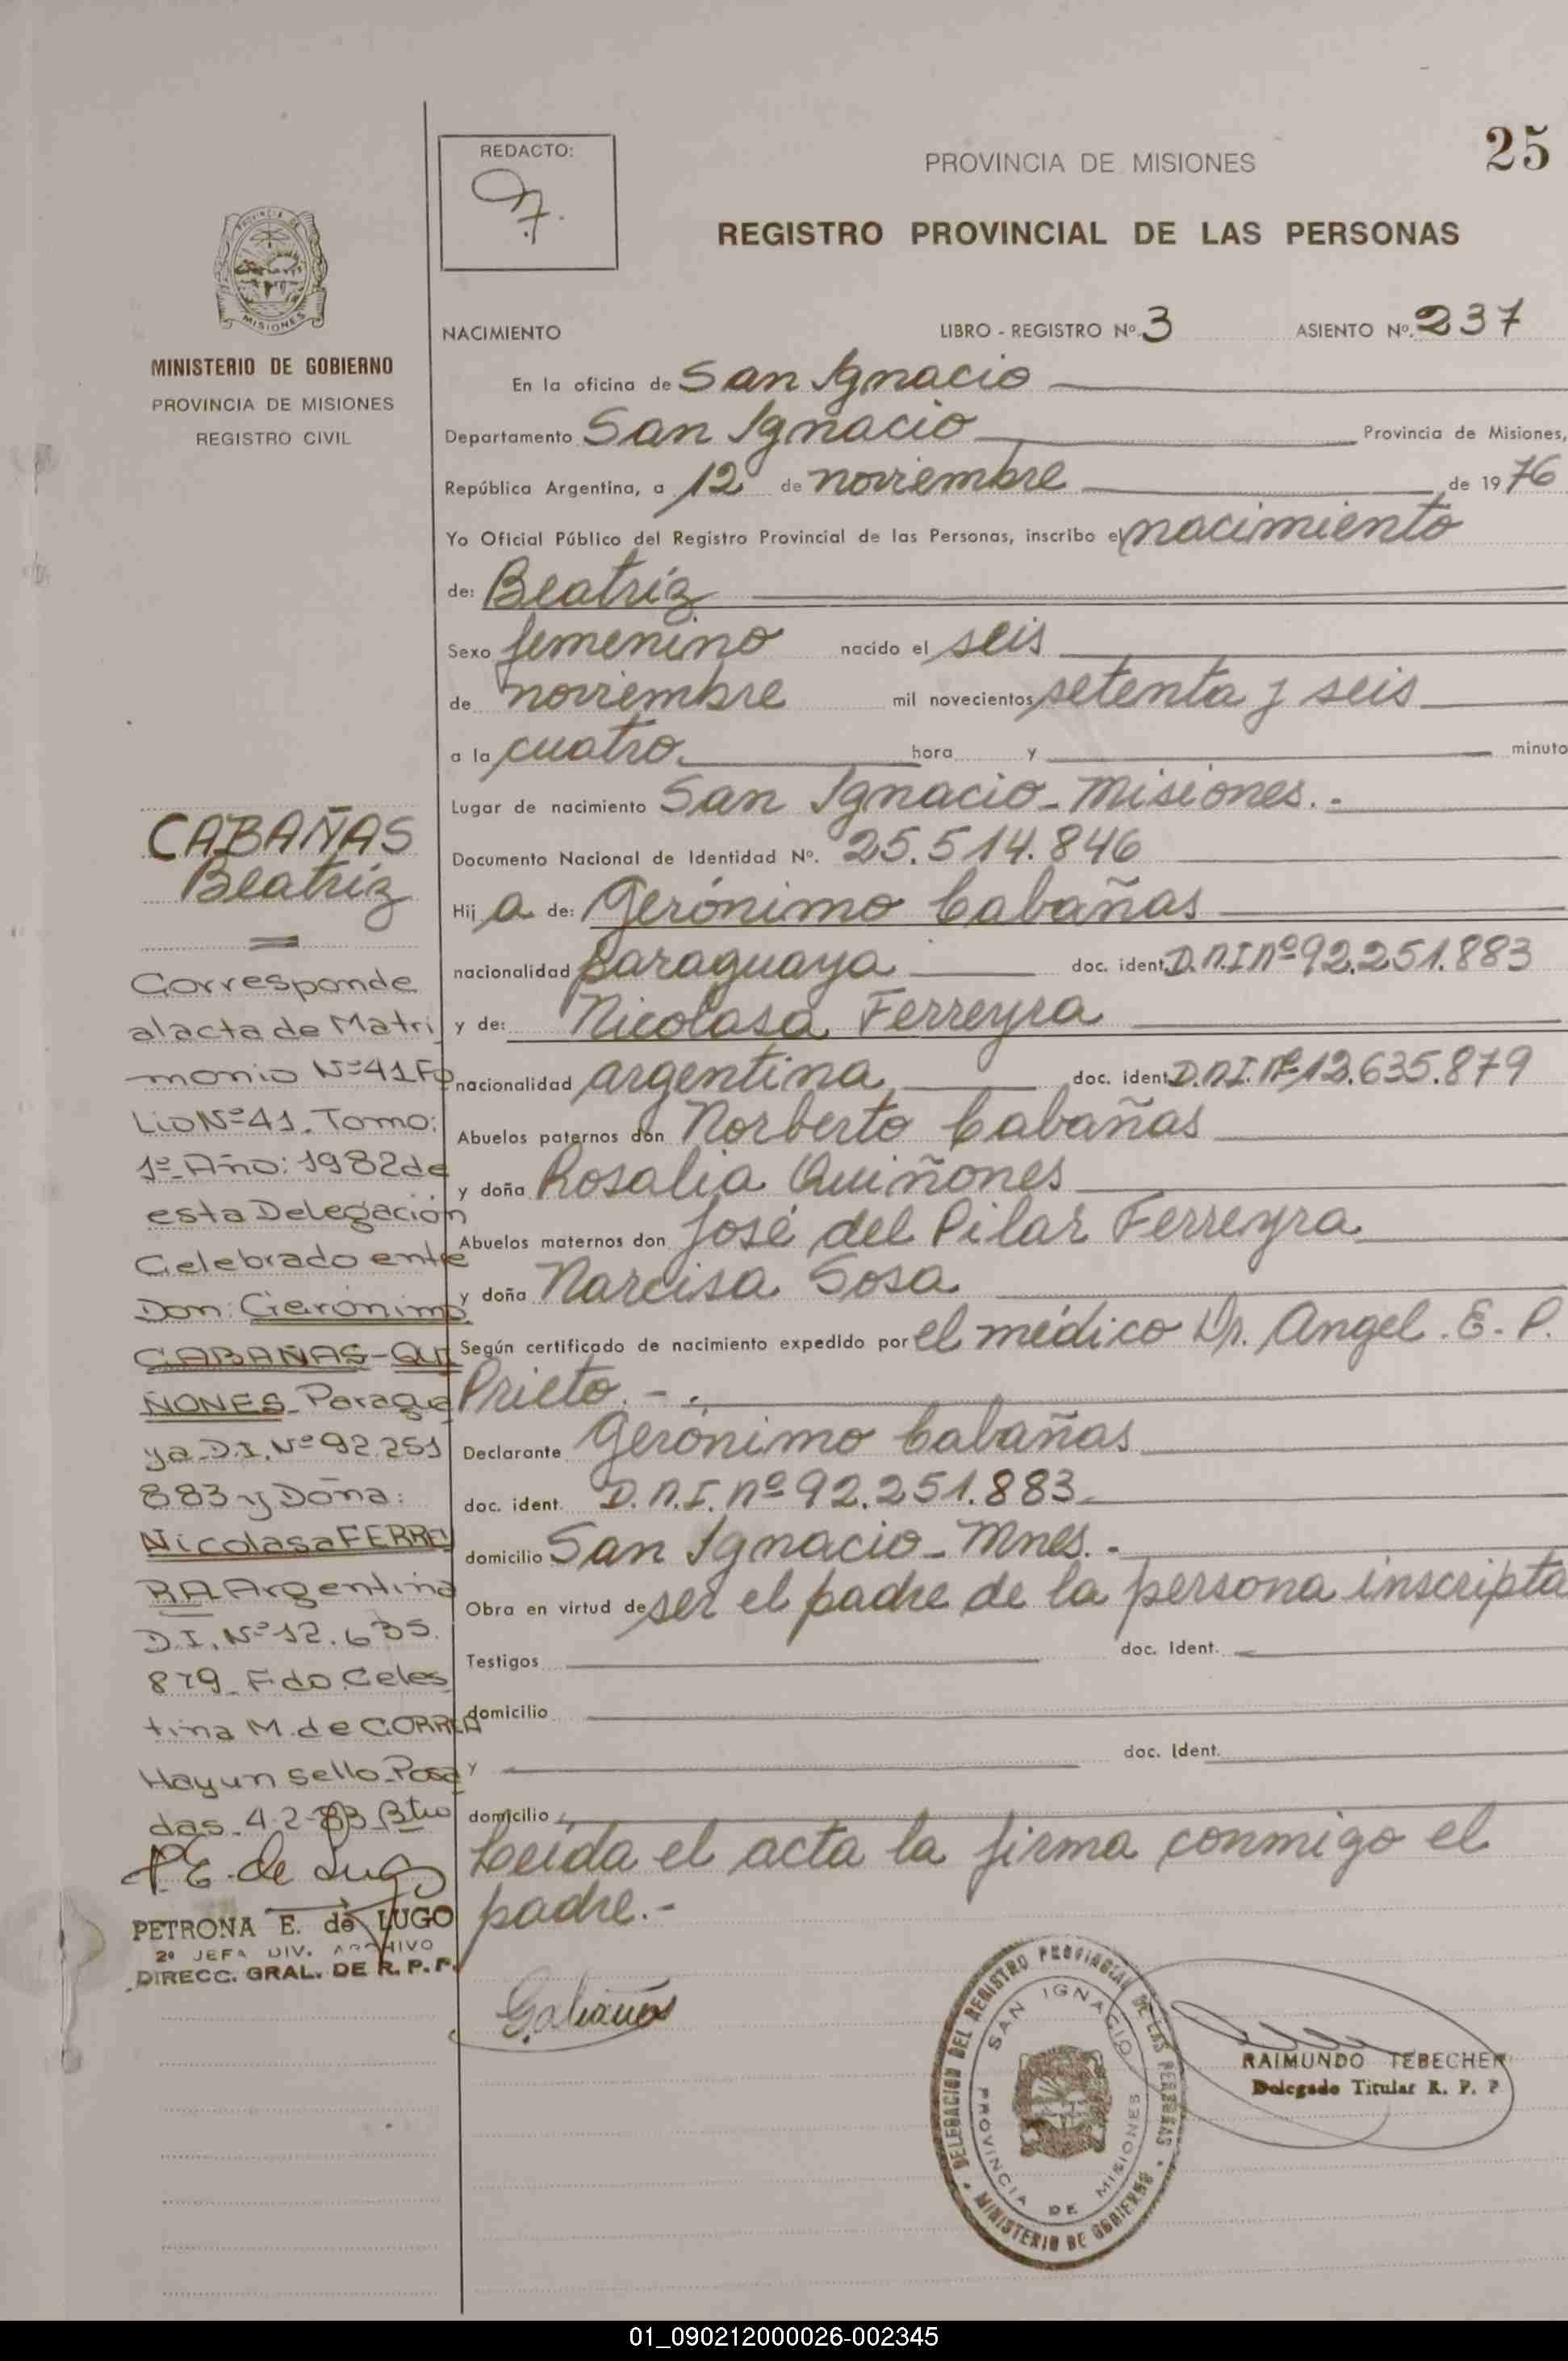 25
REDACTO:
PROVINCIA DE MISIONES
REGISTRO PROVINCIAL DE LAS PERSONAS
MISIONES
MINISTERIO DE GOBIERNO
PROVINCIA DE MISIONES
REGISTRO CIVIL
NACIMIENTO LIBRO - REGISTRO Nº 3 ASIENTO Nº. 237
En la oficina de San Ignacio
Departamento San Ignacio Provincia de Misiones,
República Argentina, a 12 de noviembre de 1976
Yo Oficial Público del Registro Provincial de las Personas, inscribo el nacimiento
de: Beatríz
Sexo femenino nacido el seis
de noviembre mil novecientos setenta y seis
a la cuatro. hora y minuto
Lugar de nacimiento San Ignacio - Misiones. -
Documento Nacional de Identidad Nº. 25.514.846
Hij a de: Gerónimo Cabañas
nacionalidad paraguaya doc. ident. D.N.I Nº 92.251.883
y de: Nicolasa Ferreyra
nacionalidad argentina doc. ident. D.N.I. Nº 12.635.879
Abuelos paternos don Norberto Cabañas
y doña Rosalia Quiñones
Abuelos maternos don José del Pilar Ferreyra
y doña Narcisa Sosa
Según certificado de nacimiento expedido por el médico Dr. Angel. E. P.
Prieto. - .
Declarante Gerónimo Cabañas
doc. ident. D.N.I. Nº 92.251.883
domicilio San Ignacio - Mnes. -
Obra en virtud de ser el padre de la persona inscripta
Testigos doc. Ident.
domicilio
y doc. Ident.
domicilio
Leída el acta la firma conmigo el
padre.-
CABAÑAS
Beatríz
Corresponde
al acta de Matri
monio Nº 41 Fo
Lio Nº 41. Tomo:
1º Año: 1982 de
esta Delegación
Celebrado entre
Don: Gerónimo
CABAÑAS-QUI
ÑONES Paragua
ya D.I. Nº 92.251
883 y Doña:
Nicolasa FERREI
RA Argentina
D.I. Nº 12.635.
879 Fdo. Celes
tina M. de CORREA
Hay un sello Posa
das 4-2-83 Btro
P. E. de Lugo
PETRONA E. de LUGO
2º JEFA DIV. ARCHIVO
DIRECC. GRAL. DE R. P. P.
Cabañas
DELEGACION DEL REGISTRO PROVINCIAL DE LAS PERSONAS
SAN IGNACIO
PROVINCIA DE MISIONES
MINISTERIO DE GOBIERNO
RAIMUNDO TEBECHER
Delegado Titular R. P. P.
01_090212000026-002345